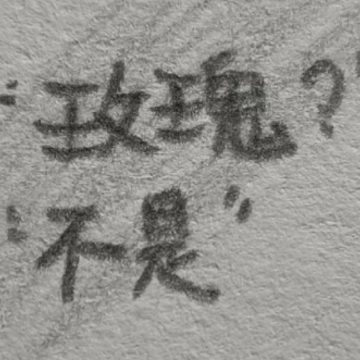 “玫瑰？”
“不是”